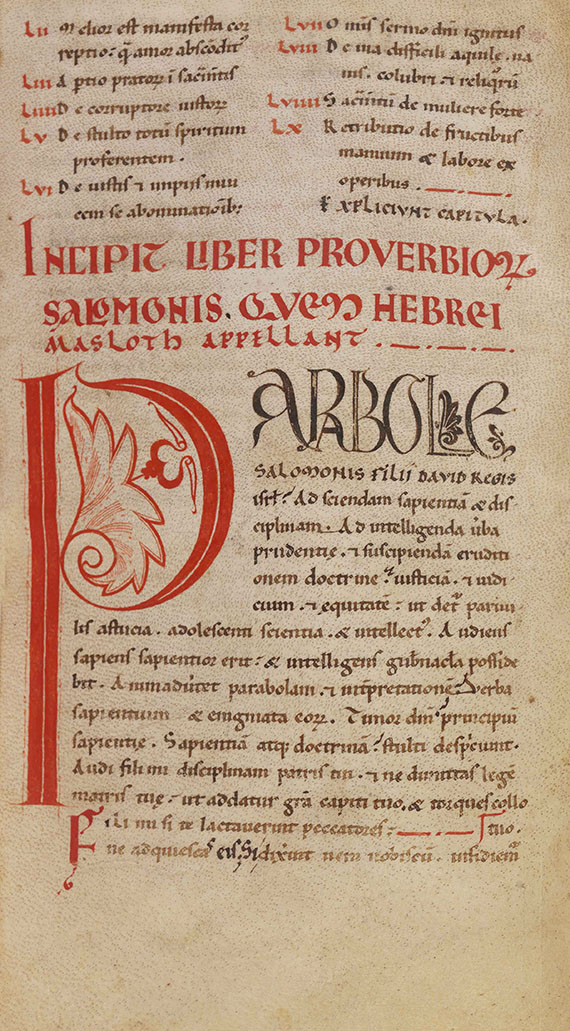 LII Melior est manifesta cor
reptio: q̄ amor abscōdit᷒
LIII A pᵗio pratorr̄ ī sacīntis
LIIII De corruptore iustorr̄
LV De stulto totū spiritum
proferentem.
LVI De iustis ⁊ impiis inui
cem se abominatiōib;
LVII Omīs sermo dn̄i ignitus
LVIII De uia difficili aquile. na
uis. colubri. ⁊ reliqͬrū
LVIIII Sacīntū de muliere forte
LX Retributio de fructibus
manuum & labore ex
operibus.
EXPLICIUNT CAPITULA.
INCIPIT LIBER PROVERBIOꝜ
SALOMONIS. QVEM HEBREI
MASLOTH APPELLANT.
PARABOLE
SALOMONIS FILII DAVID REGIS
isrl̄. Ad sciendam sapientiā & dis
ciplinam. Ad intelligenda ūba
prudentie. ⁊ suscipienda eruditi
onem doctrine. iusticiā. ⁊ iudi
cium. ⁊ equitatē. ut det᷒ paruu
lis astucia. adolescenti scientia. & intellect᷒. Audiens
sapiens sapientior erit: & intelligens gub̄nacl̄a posside
bit. Animadūtet parabolam. ⁊ intp̄retationē. Verba
sapientium & enigmata eorꝝ. Timor dn̄i principiū
sapientie. Sapientiā atq; doctrinā stulti despiciunt.
Audi fili mi disciplinam patris tui. ⁊ ne dimittas legē
matris tue: ut addatur gr̄a capiti tuo. & torques collo
tuo.
Fili mi si te lactauerint peccatores:
ne adquiescas eis. Si dixerint ueni nobiscū. insidiemᷣ